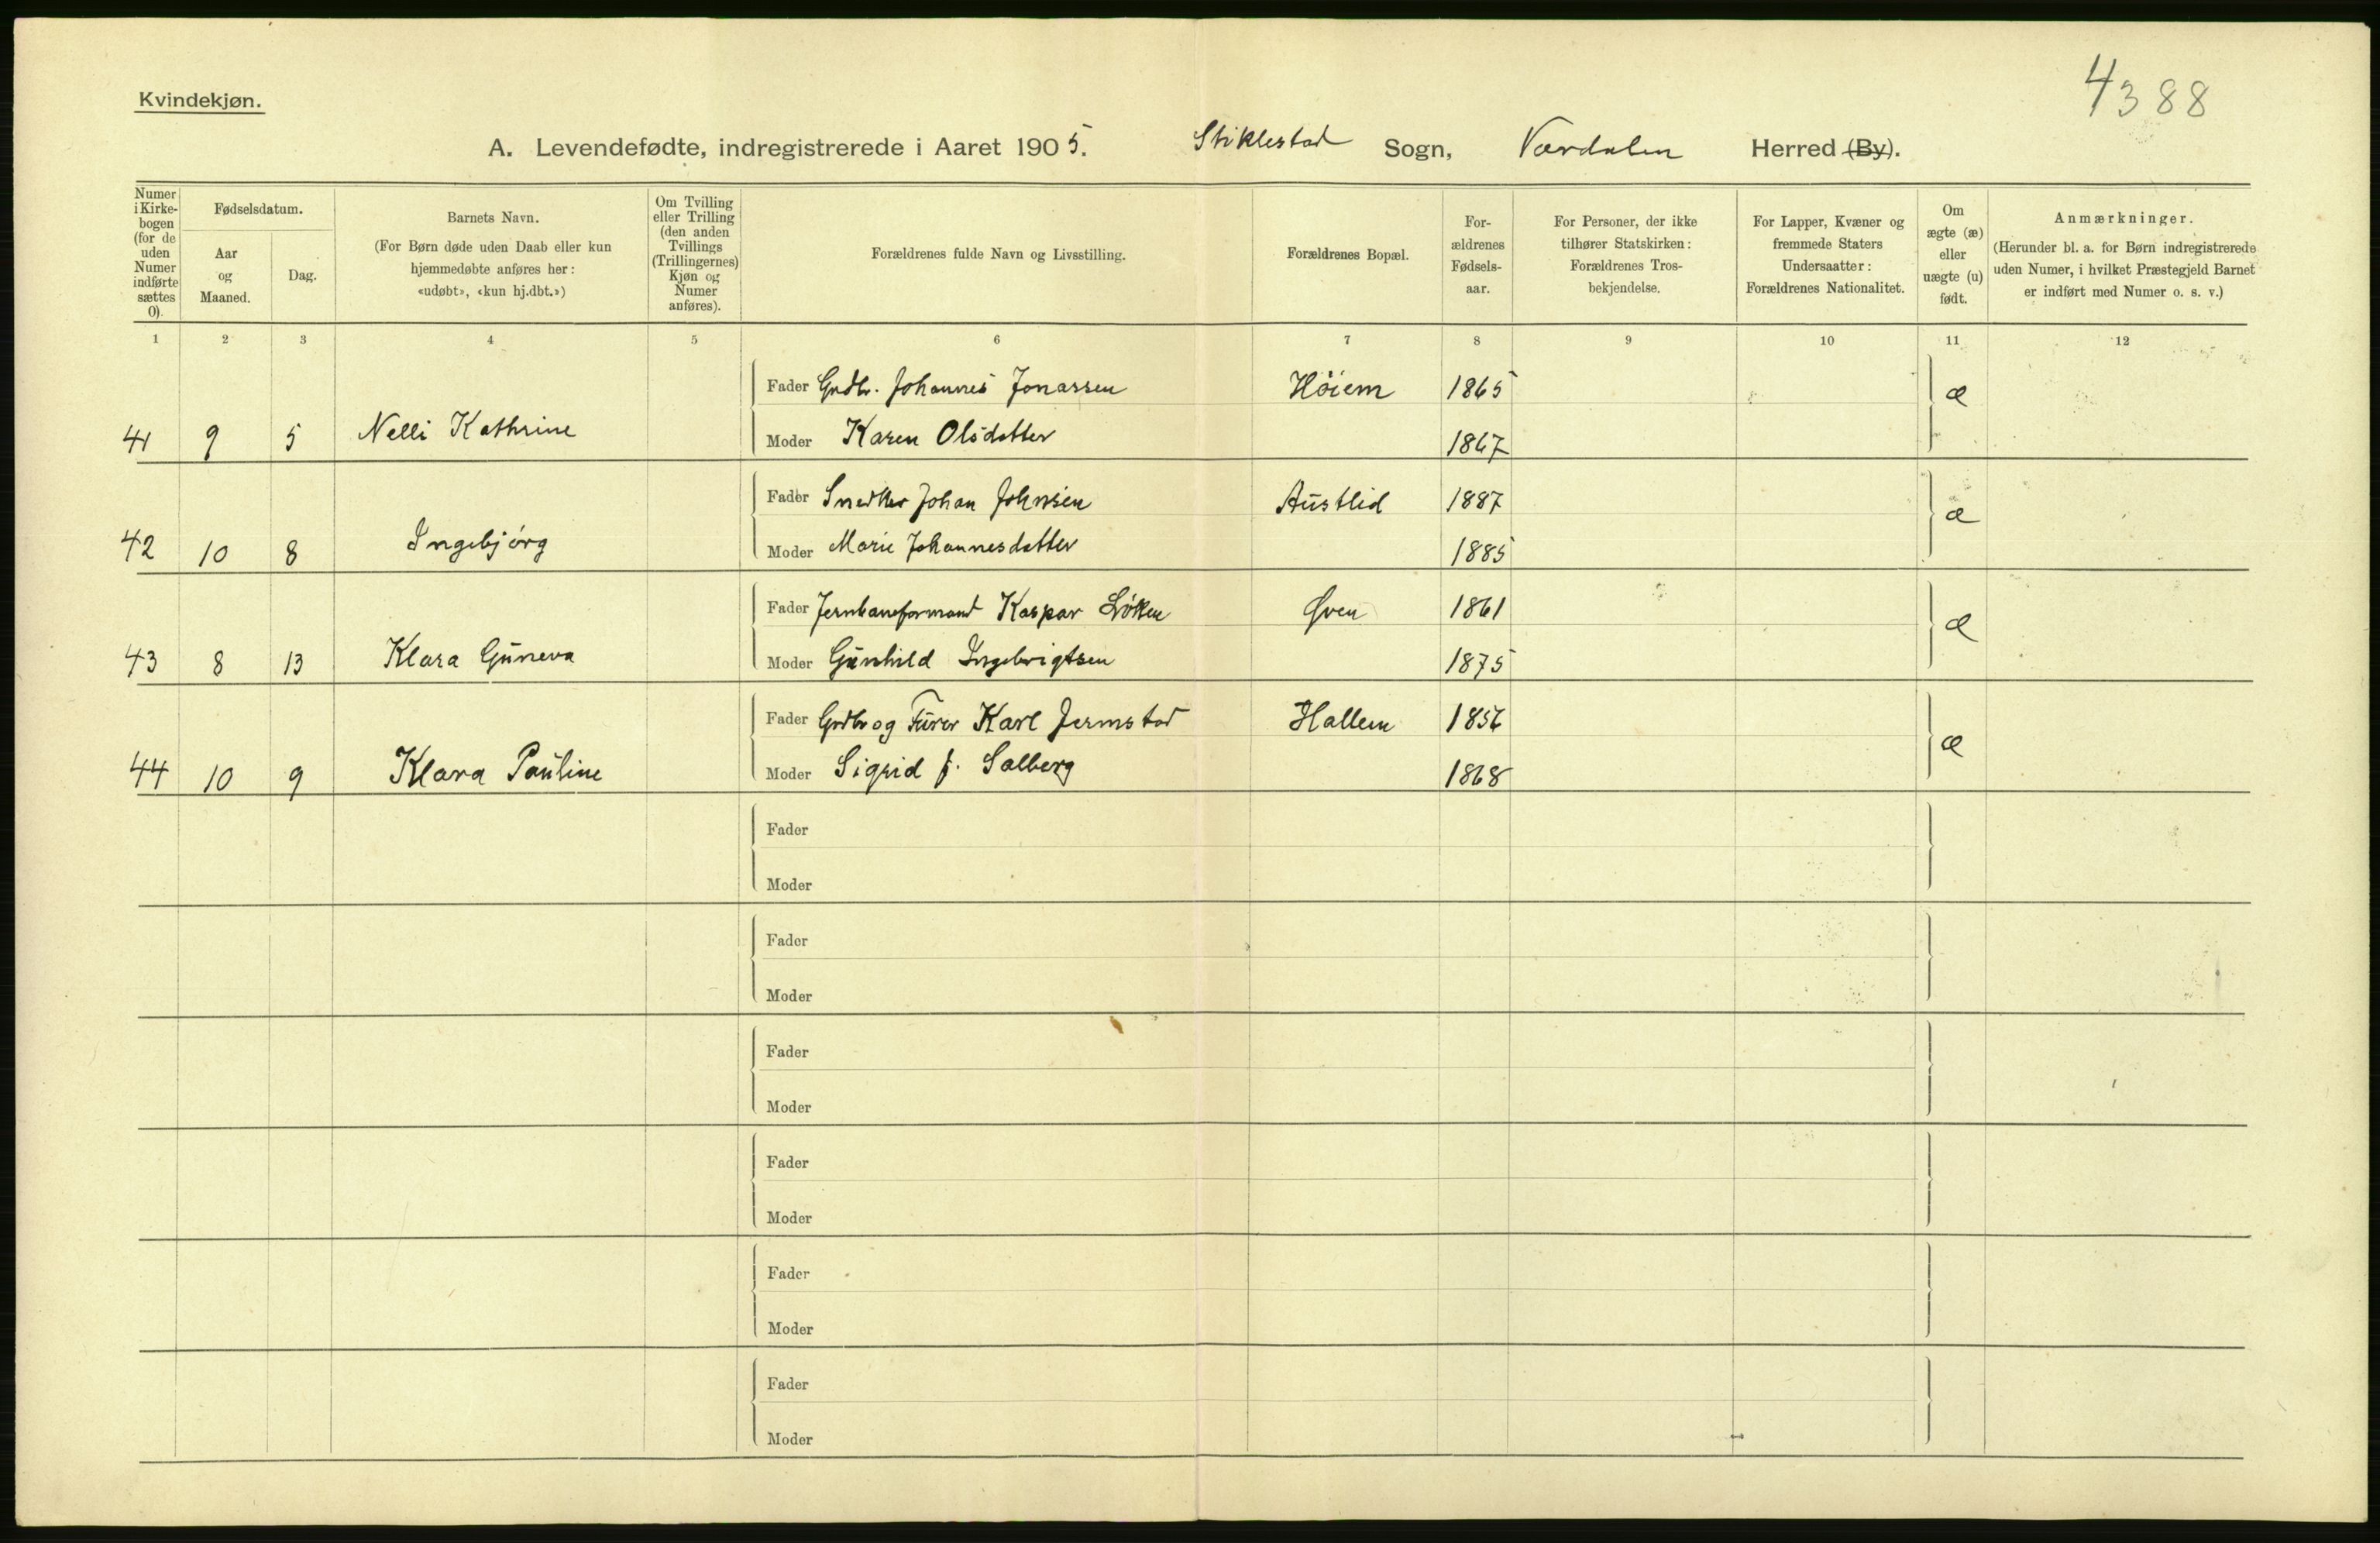 4388
Kvindekjøn.
A. Levendefødte, indregistrerede i Aaret 1905. Stiklestad Sogn, Værdalen Herred (By).
Numer i Kirke-bogen (for de uden Numer indførte sættes 0).
Fødselsdatum.
Aar og Maaned.
Dag.
Barnets Navn.
(For Børn døde uden Daab eller kun
hjemmedøbte anføres her:
«udøbt», «kun hj.dbt.»)
Om Tvilling
eller Trilling
(den anden
Tvillings
(Trillingernes)
Kjøn og
Numer
anføres).
Forældrenes fulde Navn og Livsstilling.
Forældrenes Bopæl.
For-
ældrenes
Fødsels-
aar.
For Personer, der ikke
tilhører Statskirken:
Forældrenes Tros-
bekjendelse.
For Lapper, Kvæner og
fremmede Staters
Undersaatter:
Forældrenes Nationalitet.
Om
ægte (æ)
eller
uægte (u)
født.
Anmærkninger.
(Herunder bl. a. for Børn indregistrerede
uden Numer, i hvilket Præstegjeld Barnet
er indført med Numer o. s. v.)
1 2 3 4 5 6 7 8 9 10 11 12
Fader Grdbr. Johannes Jonassen Höiem 1865 æ
41 9 5 Nelli Kathrine Moder Karen Olsdatter 1867
Fader Snedker Johan Johnsen Austlid 1887 æ
42 10 8 Ingebjörg Moder Marie Johannesdatter 1885
Fader Jernbaneformand Kaspar Löken Øren 1861 æ
43 8 13 Klara Guneva Moder Gunhild Ingebrigtsen 1875
Fader Grdbr og Furer Karl Jermstad Hallem 1856 æ
44 10 9 Klara Pauline Moder Sigrid f. Salberg 1868
Fader
Moder
Fader
Moder
Fader
Moder
Fader
Moder
Fader
Moder
Fader
Moder